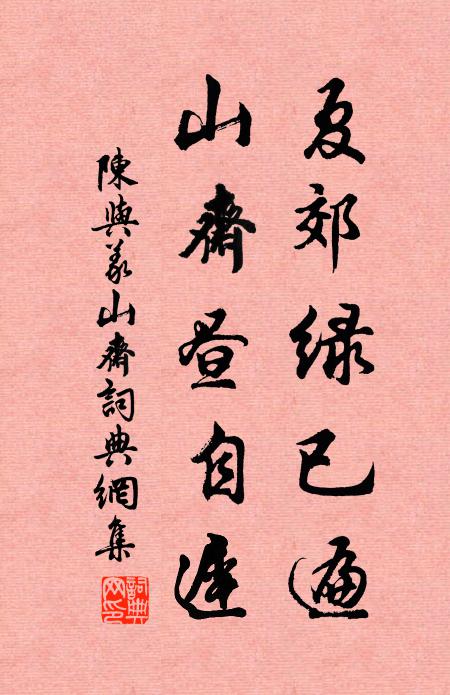 夏郊绿已遍
山齋昼自遲
陳與義山齋詞典網集
詞典网記